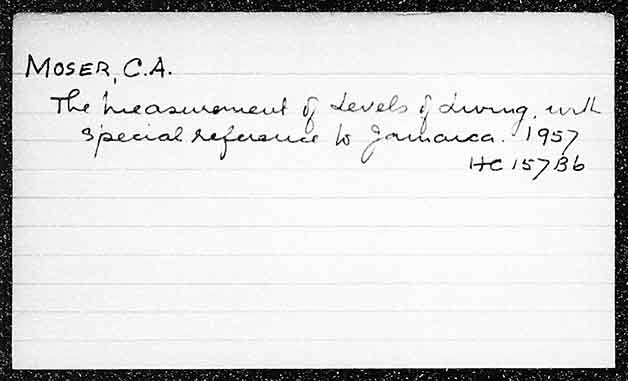 MOSER, C.A.
The measurement of Levels of Living, with
special reference to Jamaica. 1957
HC 157 B6